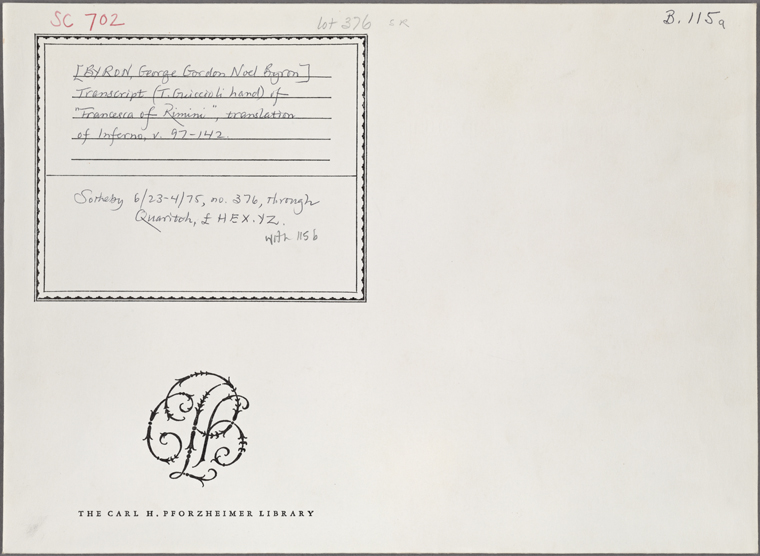 SC 702
lot 376 SK
B. 115a
[BYRON, George Gordon Noel Byron]
Transcript (T. Guiccioli hand) of
"Francesca of Rimini", translation
of Inferno, v. 97-142.
Sotheby 6/23-4/75, no. 376, through
Quaritch, £ HEX.YZ.
with 115b
THE CARL H. PFORZHEIMER LIBRARY